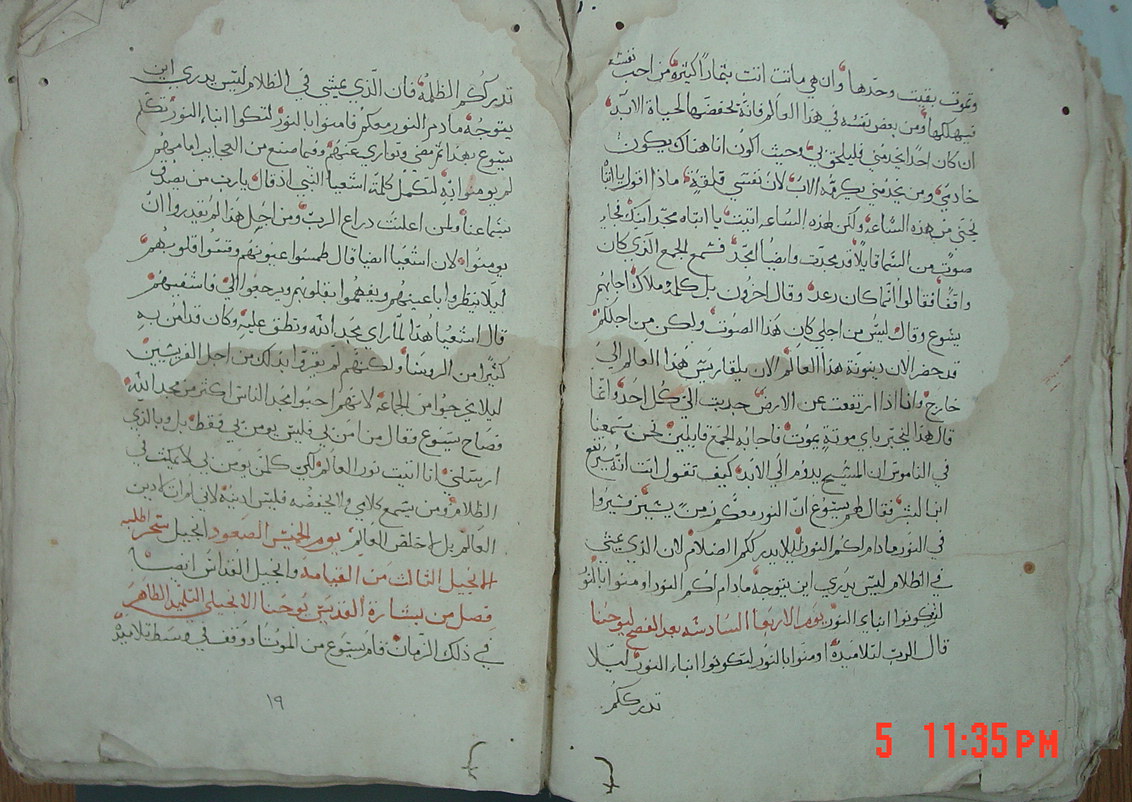 وتموت بقيت وحدها وان هي ماتت اتت بثمار كثيرة من احب نفسه
فيهلكها ومن بغض نفسه في هذا العالم فانه يحفضها لحياة الابد
ان كان احدًا يخدمني فليلحق بي وحيث اكون انا هناك يكون
خادمي ومن يخدمني يكرمه الاب لان نفسي قلقة ماذا اقول يا ابتاه
نجني من هذه الساعة ولكن لهذه الساعه اتيت يا ابتاه مجد ابنك فجاء
صوت من السما قايلًا قد مجدت وايضا امجد فسمع الجمع الذي كان
واقفا فقالوا انما كان رعد وقال اخرون بل كلمه ملاك اجابهم
يسوع وقال ليس من اجلي كان هذا الصوت ولكن من اجلكم
قد حضر الان دينونة هذا العالم الان يلقا ريس هذا العالم الي
خارج وانا اذا ارتفعت عن الارض جدبت الي كل احد وانما
قال هذا ليخبر باي موتة يموت فاجابه الجمع قايلين نحن سمعنا
في الناموس ان المسيح يدوم الي الابد كيف تقول انت انه يرتفع
ابن البشر فقال لهم يسوع ان النور معكم زمن يسير فسيروا
في النور مادام لكم النور ليلا يدرككم الضلام لان الذي يمشي
في الظلام ليس يدري اين يتوجه مادام لكم النور اومنوا بالنور
لتكونوا ابناء النور يوم الاربعا السادسه بعد الفصح ليوحنا
قال الرب لتلاميذه اومنوا بالنور لتكونوا ابناء النور ليلا
تدرككم
تدرككم الظلمة فان الذي يمشي في الظلام ليس يدري اين
يتوجه مادام النور معكم فامنوا بالنور لتكوا ابناء النور تكلم
يسوع بهذا ثم مضي وتواري عنهم وفيما صنع من العجايب امامهم
لم يومنوا به لتكمل كلمة اشعيا النبي اذ قال يا رب من يصدق
سماعنا ولمن اعلنت دراع الرب ومن اجل هذا لم يقدروا ان
يومنوا لان اشعيا ايضا قال طمسوا عيونهم وقسوا قلوبهم
ليلا ينظروا باعينهم ويفهموا بقلوبهم ويرجعوا الي فاشفيهم
قال اشعيا هذا لما راي مجد الله ونطق عليه وكان قد امن به
كثيرا من الروسا ولكنهم لم يقروا بدلك من اجل الفريسين
ليلا يخرجوا من الجماعة لانهم احبوا مجد الناس اكثر من مجد الله
فصاح يسوع وقال من امن بي فليس يومن بي فقط بل وبالذي
ارسلني انا اتيت نور العالم لكي كلمن يومن بي لا يمكث في
الظلام ومن يسمع كلامي ولا يحفضه فليس ادينه لاني لم ات لادين
العالم بل لاخلص العالم يوم الخميس الصعود انجيل سحر اطلبه
الانجيل الثالث من القيامه وانجيل القداس ايضا
فصل من بشارة القديس يوحنا الانجيلي التلميذ الطاهر
في ذلك الزمان قام يسوع من الموت ووقف في وسط تلاميذه
١٩
5 11:35 PM